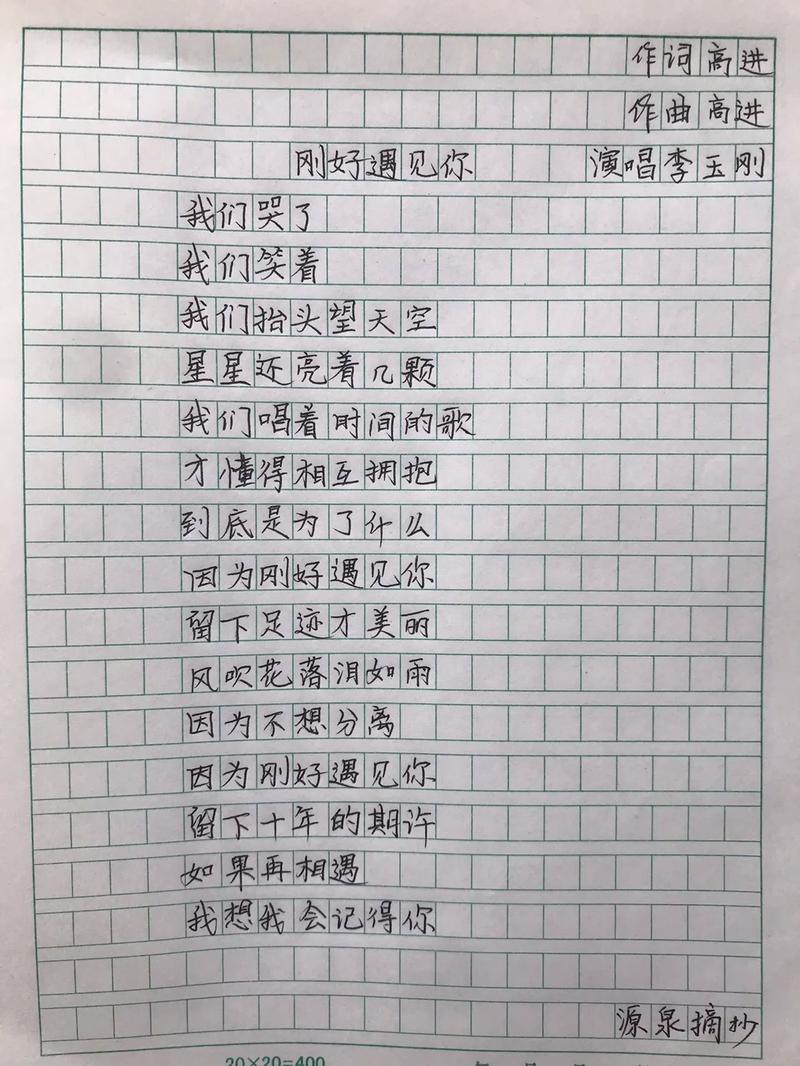 作词高进
作曲高进
刚好遇见你 演唱李玉刚
我们哭了
我们笑着
我们抬头望天空
星星还亮着几颗
我们唱着时间的歌
才懂得相互拥抱
到底是为了什么
因为刚好遇见你
留下足迹才美丽
风吹花落泪如雨
因为不想分离
因为刚好遇见你
留下十年的期许
如果再相遇
我想我会记得你
源泉摘抄
20×20=400